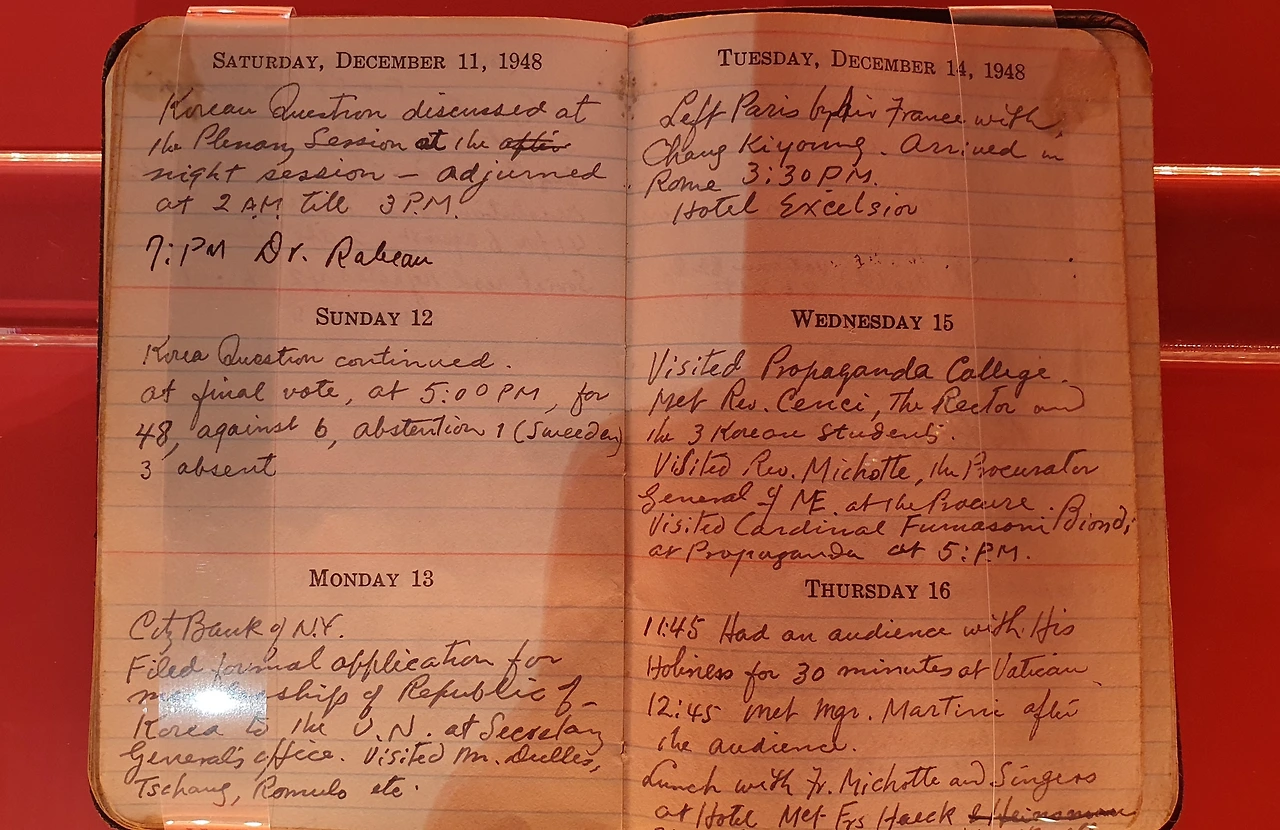 SATURDAY, DECEMBER 11, 1948
Korean Question discussed at
the Plenary Session at the after
night session – adjurned
at 2 AM till 3 P.M.
7: PM Dr. Rabeau
SUNDAY 12
Korea Question continued.
at final vote, at 5:00 PM, for
48, against 6, abstention 1 (Sweeden)
3 absent
MONDAY 13
City Bank of N.Y.
Filed formal application for
of Republic of
Korea to the U.N. at Secretary
General's office. Visited Mr. Dulles,
Tschang, Romulo etc.
TUESDAY, DECEMBER 14, 1948
Left Paris by Air France with
Chang Kiyoung. Arrived in
Rome 3:30 P.M.
Hotel Excelsior
WEDNESDAY 15
Visited Propaganda College.
Met Rev. Cenci, The Rector and
the 3 Korean Students.
Visited Rev. Michotte, the Procurator
General of ME. at the Procure.
Visited Cardinal Fumasoni Biondi
at Propaganda at 5: P.M.
THURSDAY 16
11:45 Had an audience with His
Holiness for 30 minutes at Vatican
12:45 met Mgr. Martini after
the audience.
Lunch with Fr. Michotte and Singers
at Hotel Met Frs Haeck